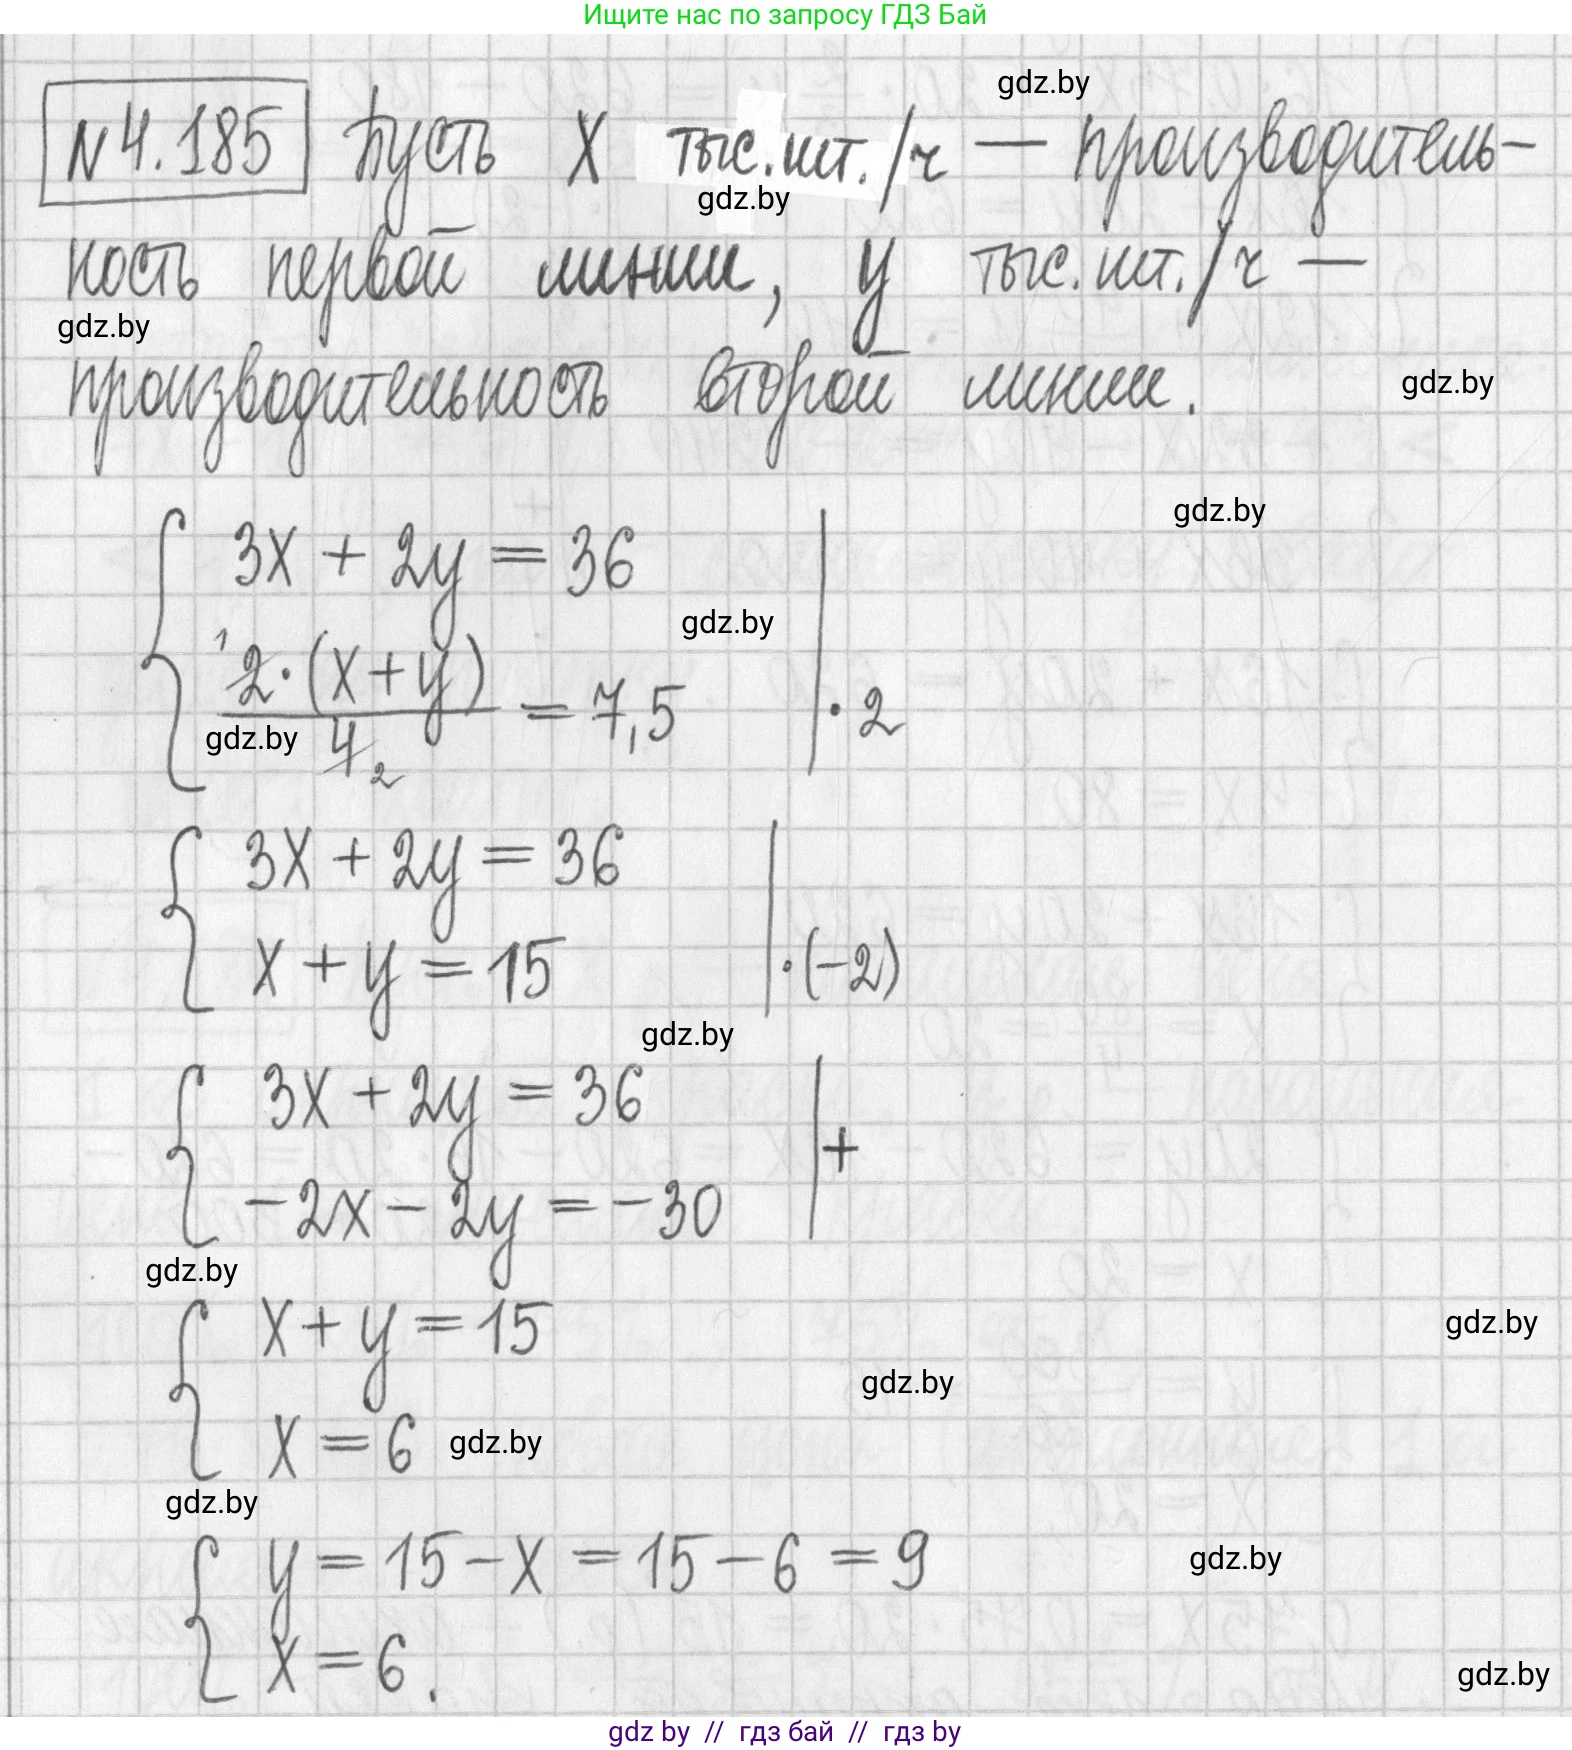 Ищите нас по запросу ГДЗ Бай
gdz.by
№4.185 Пусть х тыс.шт./ч — производитель-
gdz.by
ность первой линии, у тыс.шт./ч —
gdz.by
производительность второй линии.
gdz.by
gdz.by
3x + 2y = 36
gdz.by
¹2·(x+y)/4₂ = 7,5 | ·2
gdz.by
3x + 2y = 36
x + y = 15 | ·(-2)
gdz.by
3x + 2y = 36 | +
-2x - 2y = -30
gdz.by
x + y = 15
gdz.by
gdz.by
x = 6 gdz.by
gdz.by
y = 15 - x = 15 - 6 = 9
gdz.by
x = 6.
gdz.by
gdz by // гдз бай // гдз by